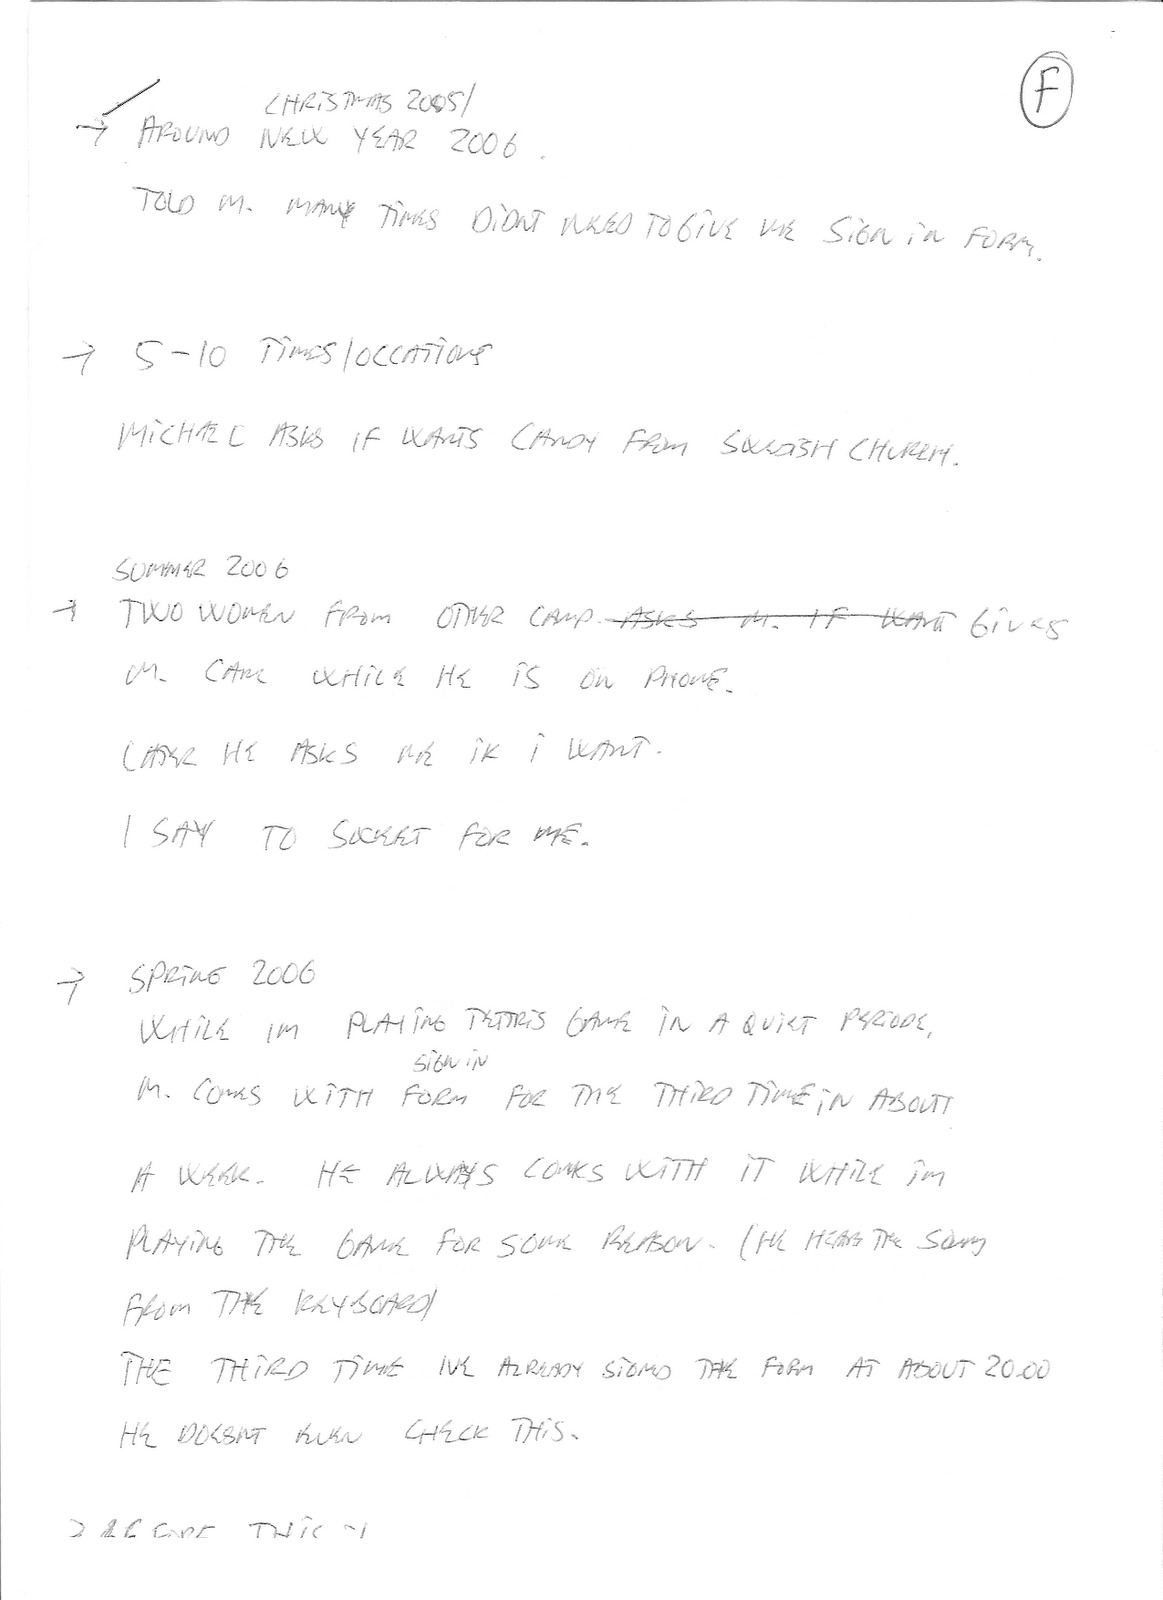 F
CHRISTMAS 2005/
→ AROUND NEW YEAR 2006.
TOLD M. MANY TIMES DIDNT NEED TO GIVE ME SIGN IN FORM.
→ 5-10 TIMES/OCCATIONS
MICHAEL ASKS IF WANTS CANDY FROM SWEDISH CHURCH.
SUMMER 2006
→ TWO WOMEN FROM OTHER CAMP. ASKS M. IF WANT GIVES
M. CAKE WHILE HE IS ON PHONE.
LATER HE ASKS ME IK I WANT.
I SAY TO SWEET FOR ME.
→ SPRING 2006
WHILE IM PLAYING TETRIS GAME IN A QUIET PERIODE,
SIGN IN
M. COMES WITH FORM FOR THE THIRD TIME IN ABOUT
A WEEK. HE ALWAYS COMES WITH IT WHILE IM
PLAYING THE GAME FOR SOME REASON. (HE HEARS THE SOUNG
FROM THE KEYBOARD)
THE THIRD TIME IVE ALREADY SIGNED THE FORM AT ABOUT 20.00
HE DOESNT EVEN CHECK THIS.